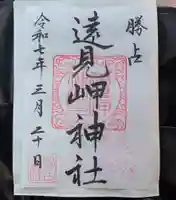 勝占
遠見岬神社
令和七年三月二十日